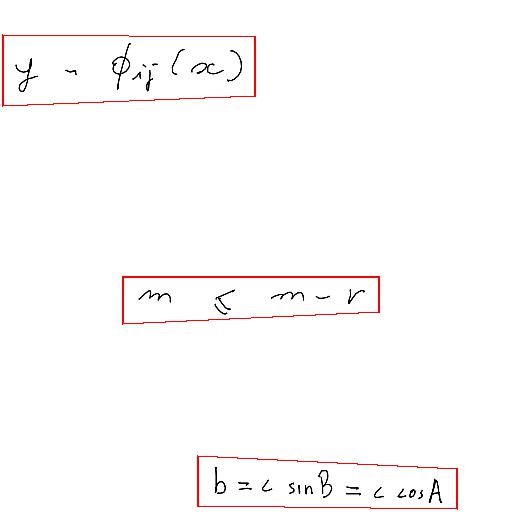 y ~ ϕ_{ij}(x)
m ≤ m - r
b = c sin B = c cos A